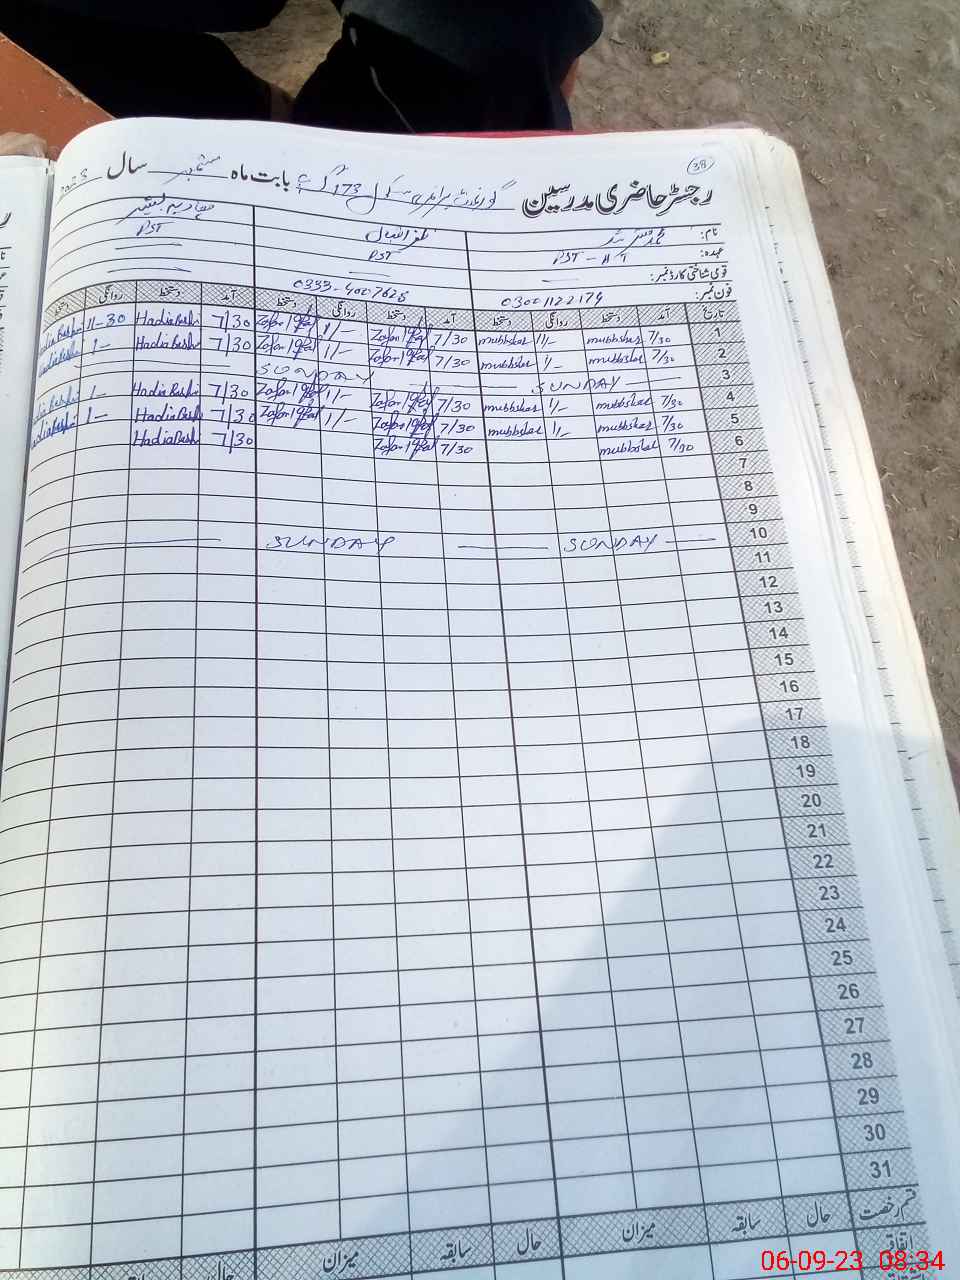 38
رجسٹر حاضری مدرسین گورنمنٹ پرائمری سکول 173 بابت ماہ ستمبر سال 2023
نام:
ظفر اقبال
عہدہ: PST - HT
PST
PST
قومی شناختی کارڈ نمبر:
فون نمبر: 03001122174
0333-4007625
تاریخ آمد دستخط روانگی دستخط آمد دستخط روانگی دستخط آمد دستخط روانگی دستخط
1 7/30 mubbsher 1/- mubbsher 7/30 Zafar Iqbal 1/- Zafar Iqbal 7/30 Hadia Bashir 11-30 Hadia Bashir
2 7/30 mubbsher 1/- mubbsher 7/30 Zafar Iqbal 1/- Zafar Iqbal 7/30 Hadia Bashir 1- Hadia Bashir
3 SUNDAY SUNDAY
4 7/30 mubbsher 1/- mubbsher 7/30 Zafar Iqbal 1/- Zafar Iqbal 7/30 Hadia Bashir 1- Hadia Bashir
5 7/30 mubbsher 1/- mubbsher 7/30 Zafar Iqbal 1/- Zafar Iqbal 7/30 Hadia Bashir 1- Hadia Bashir
6 7/30 mubbsher 7/30 Zafar Iqbal 7/30 Hadia Bashir
7
8
9
10 SUNDAY SUNDAY
11
12
13
14
15
16
17
18
19
20
21
22
23
24
25
26
27
28
29
30
31
قسم رخصت حال سابقہ میزان حال سابقہ میزان حال
اتفاقیہ
06-09-23 08:34